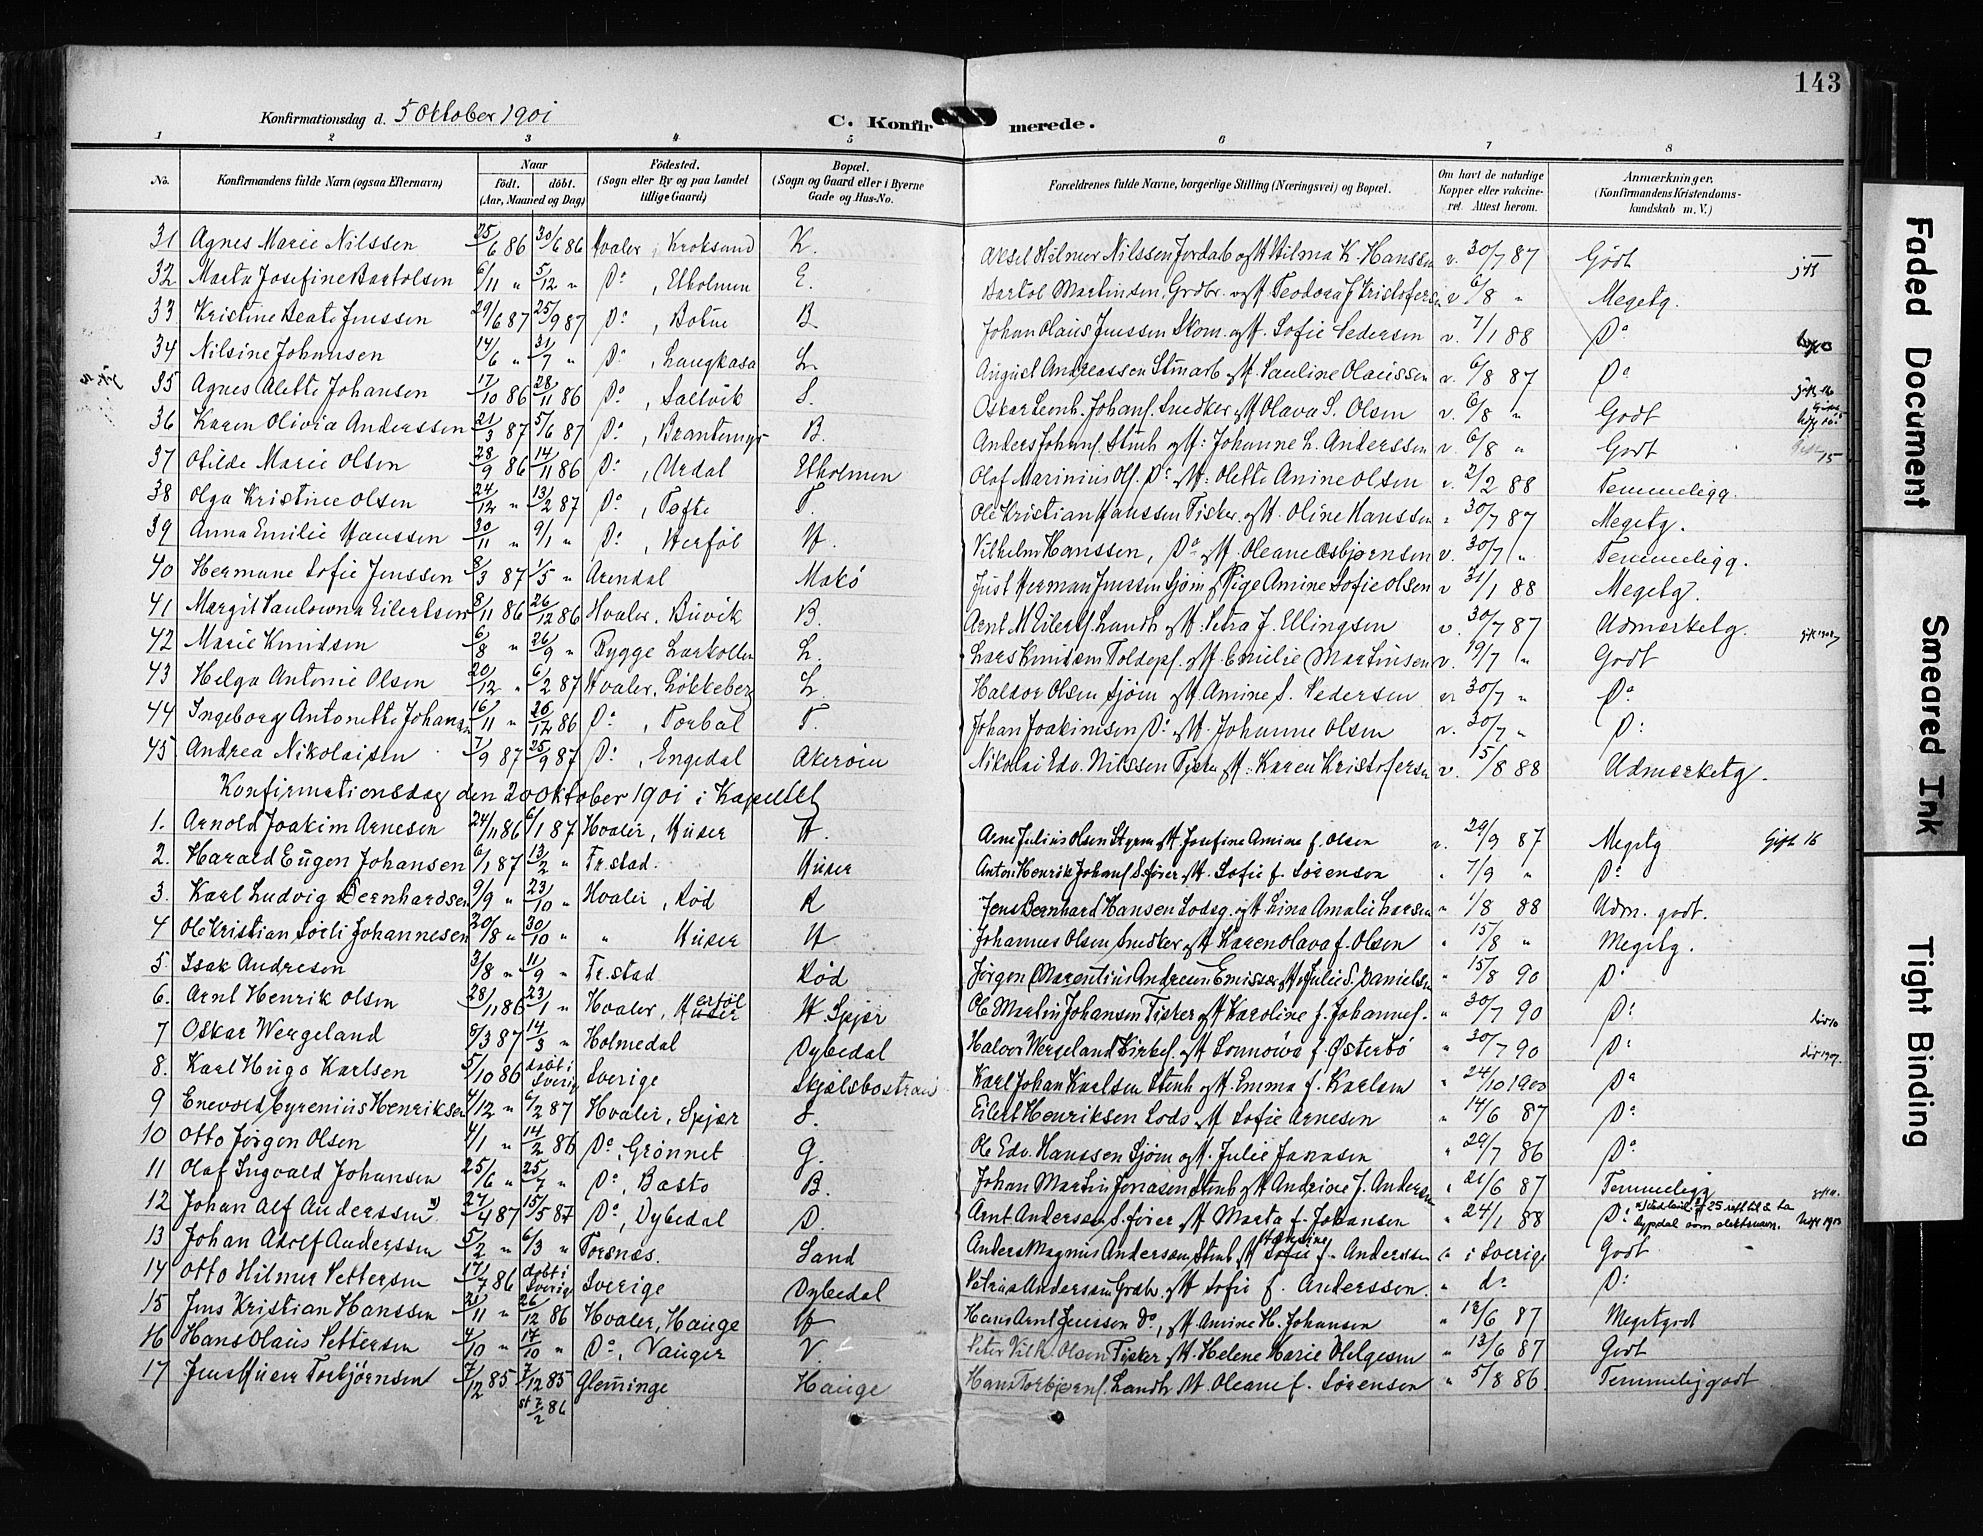 143
Konfirmationsdag d. 5 Oktober 1901
C. Konfirmerede.
1 2 3 4 5 6 7 8
No. Konfirmandens fulde Navn (ogsaa Efternavn) Naar födt. döbt. (Aar, Maaned og Dag) Födested. (Sogn eller By og paa Landet tillige Gaard) Bopæl. (Sogn og Gaard eller i Byerne Gade og Hus-No. Forældrenes fulde Navne, borgerlige Stilling (Næringsvei) og Bopæl. Om havt de naturlige Kopper eller vakcineret. Attest herom. Anmærkninger. (Konfirmandens Kristendomskundskab m. V.)
31 Agnes Marie Nilssen 25/6 86 30/6 86 Hvaler, Kroksund K. Aksel Hilmer Nilssen Jordarb og H Hilma K. Hanssen v. 30/7 87 Godt
32 Marta Josefine Bartolsen 6/11 " 5/12 " Do, Etholmen E. Bartol Martinsen, Grdbr. og H Teodora J Kristofers v 6/8 " Megetg.
33 Kristine Beate Jenssen 29/6 87 25/9 87 Do, Botne B Johan Olaus Jenssen Skom. og H. Sofie Pedersen v. 7/1 88 Do
34 Nilsine Johansen 14/6 " 31/7 " Do, Langkasa L. August Andreassen Stenarb og H. Pauline Olaussen v. 6/8 87 Do
35 Agnes Alette Johansen 17/10 86 28/11 86 Do, Saltvik S. Oskar Leonh. Johans. Snedker og H Olava S. Olsen v. 6/8 " Godt
36 Karen Olivia Anderssen 21/3 87 5/6 87 Do, Brantemyr B. Anders Johans. Stenh og H: Johanne L. Anderssen v 6/8 " Godt
37 Otilde Marie Olsen 28/9 86 14/11 86 Do, Urdal Etholmen Olaf Marinius Ols. Do og H: Olette Amine Olsen v. 2/2 88 Temmeligg.
38 Olga Kristine Olsen 24/12 " 13/2 87 Do, Tofte T. Ole Kristian Hanssen Fisker. og H. Oline Hanssen " 30/7 87 Megetg.
39 Anna Emilie Hanssen 30/11 " 9/1 " Do, Herföl H. Vilhelm Hanssen, Do og H. Oleane Asbjørnsen v. 30/7 " Temmeligg.
40 Hermane Sofie Jenssen 8/3 87 1/5 " Arendal Makö Just Herman Jenssen Sjøm og Pige Amine Sofie Olsen v 31/1 88 Megetg.
41 Margit Paulowna Eilertsen 8/11 86 26/12 86 Hvaler. Buvik B. Arnt M Eilerts. Landh og H: Petra J. Ellingsen v. 30/7 87 Udmerketg.
42 Marie Knudsen 6/8 " 26/9 " Rygge Larkollen L. Lars Knudsen Toldops. og H Emilie Martinsen v. 19/7 " Godt
43 Helga Antonie Olsen 20/12 " 6/2 87 Hvaler, Løkkeberg L. Haldor Olsen Sjøm og H Amine S. Pedersen v. 30/7 " Do
44 Ingeborg Antonette Johansen 16/11 " 26/12 86 Do, Torbal T. Johan Joakimsen Do og H. Johanne Olsen v. 30/7 " Do
45 Andrea Nikolaisen 7/9 87 25/9 87 Do, Engedal Akerøen Nikolai Edv. Nilssen Fisker og H.: Karen Kristofersen v. 15/8 88 Udmerketg.
Konfirmationsdag den 20 Oktober 1901 i Kapellet
1. Arnold Joakim Arnesen 24/11 86 6/1 87 Hvaler, Huser H. Arne Julius Olsen Styrm og H Josefine Amine f. Olsen v. 29/9 87 Megetg Gift 16
2. Harald Eugen Johansen 6/1 87 13/2 " Fr.stad. Huser Anton Henrik Johans S.fører og H. Sofie f. Sørensen " 7/9 " Do
3. Karl Ludvig Bernhardsen 9/9 " 23/10 " Hvaler, Rød R Jens Bernhard Hansen Lodsg. og H Lina Amalie Larsen " 1/8 88 Udm. godt.
4 Ole Kristian Soeli Johannesen 20/8 " 30/10 " " Huser H Johannes Olsen, Snedker og H Karen Olava f. Olsen " 15/8 " Megetg.
5. Isak Andresen 3/8 " 11/9 " Fr.stad Rød Jörgen Marentius Andresen Emissær og H Julie S. Danielsen " 15/8 90 Do
6. Arnt Henrik Olsen 28/11 86 23/1 " Hvaler, Huser erföl H Spjær Ole Martin Johansen Fisker og H Karoline f. Johannes. " 30/7 90 Do
7 Oskar Wergeland 8/3 87 14/3 " Holmedal Dybedal Halvor Wergeland Kirkes. og H Sonnöva f Østerbö " 30/7 90 Do
8. Karl Hugo Karlsen 5/10 86 döbt i Sverig Sverige Skjelsbostran Karl Johan Karlsen Stenh og H. Emma f. Karlsen " 24/10 1900 Do
9 Enevold Cyrenius Henriksen 4/12 " 6/2 87 Hvaler, Spjær S. Eilert Henriksen Lods og H Sofie Arnesen " 14/6 87 Do
10 Otto Jørgen Olsen 4/1 " 14/2 86 Do, Grønnet G. Ole Edv. Hanssen Sjøm og H. Julie Jonasen " 29/7 86 Do
11 Olaf Ingvald Johansen 25/6 " 25/7 " Do, Basto B. Johan Martin Jonasen Stenh og H Andrine J. Andersen " 21/6 87 Temmeligg
12 Johan Alf Anderssen 27/4 87 15/5 87 Do, Dybedal D. Arnt Anderssen S.fører og H Marta f. Johansen " 24/1 88 Do
13 Johan Adolf Anderssen 5/2 " 6/3 " Torsnes. Sand Anders Magnus Anderssen Stenh og H Sofie f. Anderssen " i Sverige Godt
14 Otto Hilmer Pettersen 17/7 86 döbt i Sverig Sverige Dybedal Petrus Anderssen Grdbr. og H Sofie f. Anderssen. " do Do
15 Jens Kristian Hanssen 21/11 " 26/12 86 Hvaler, Hauge H Hans Arnt Jenssen Do, og H Amine H. Johansen " 12/6 87 Megetgodt
16 Hans Olaus Pettersen 4/10 " 17/10 " Do, Vauger V. Peter Vilh. Olsen Fisker og H. Helene Marie Helgesen " 13/6 87 Godt
17 Jens Huser Torbjørnsen 7/12 85 7/12 85 st 2/2 86 Glemminge Hauge Hans Torbjørns. Landh og H Oleane f. Sörensen " 5/8 86 Temmeliggodt
Faded Document
Smeared Ink
Tight Binding